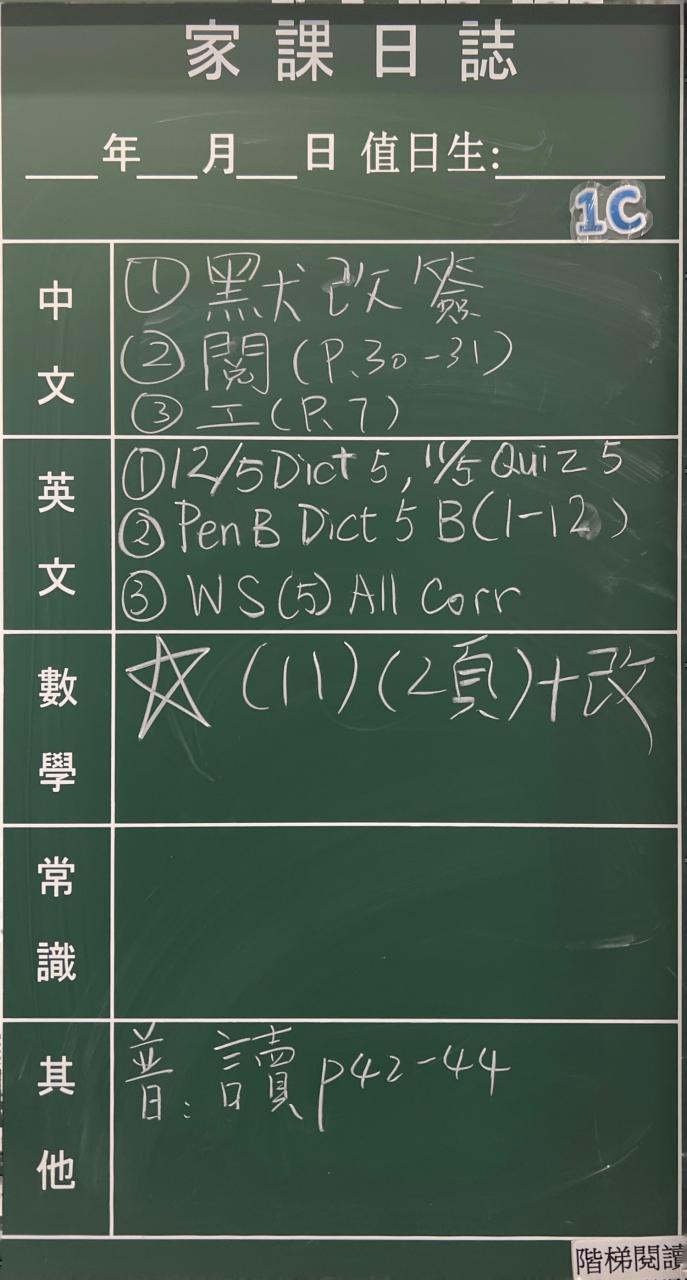 家課日誌
___年___月___日 值日生:________
1C
中文
① 默改簽
② 閱 (P.30-31)
③ 工 (P.7)
英文
① 12/5 Dict 5, 11/5 Quiz 5
② Pen B Dict 5 B(1-12)
③ WS(5) All Corr
數學
☆ (11)(2頁)+改
常識
其他
普: 讀 p42-44
階梯閱讀